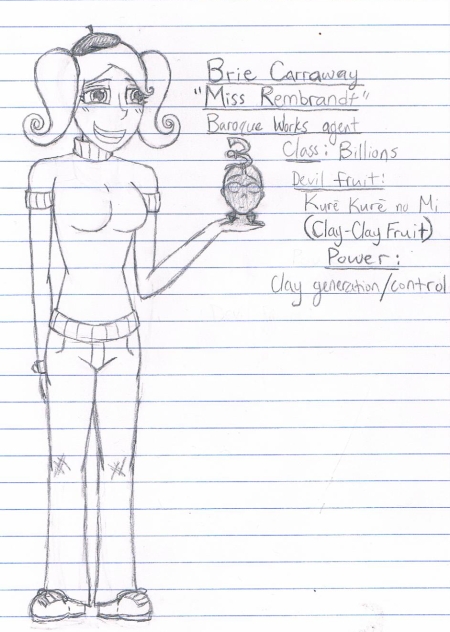 Brie Carraway
"Miss Rembrandt"
Baroque Works agent
Class: Billions
Devil fruit:
Kurē Kurē no Mi
(Clay-Clay Fruit)
Power:
Clay generation/control